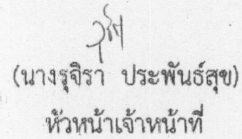 (นางรุจิรา ประพันธ์สุข)
หัวหน้าเจ้าหน้าที่